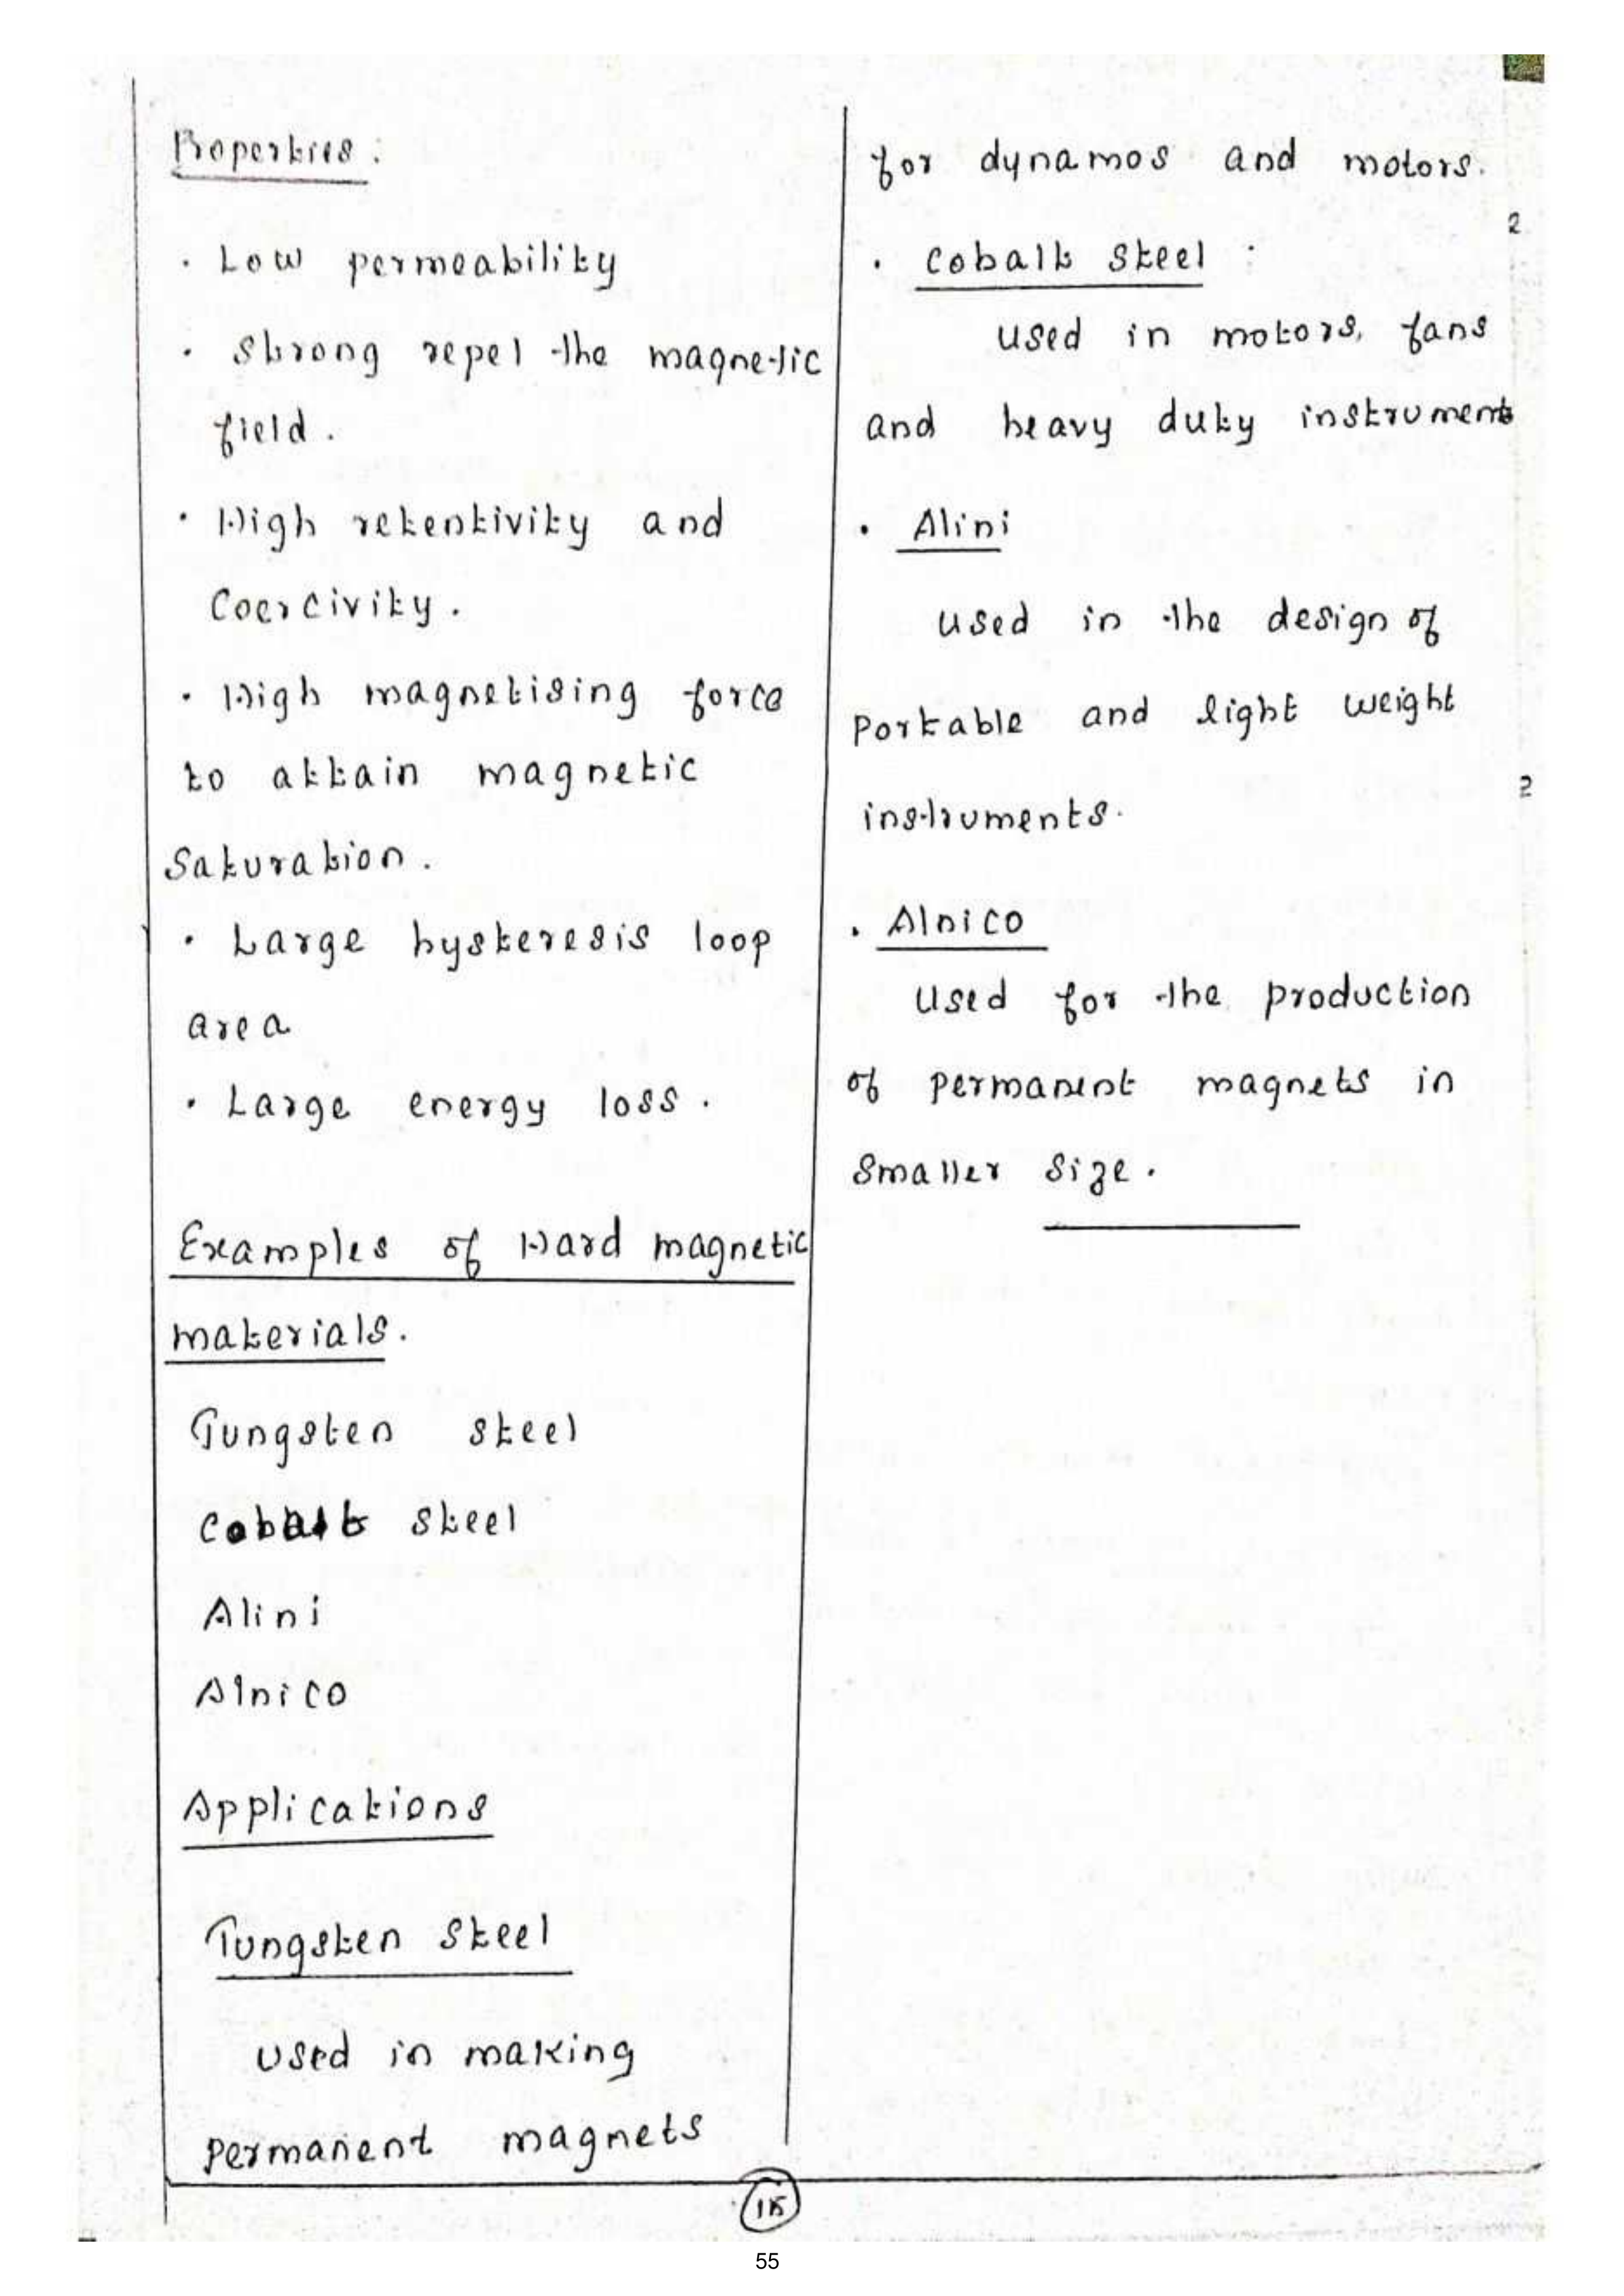 Properties :
· Low permeability
· Strong repel the magnetic
field.
· High retentivity and
Coercivity.
· High magnetising force
to attain magnetic
Saturation.
· Large hysteresis loop
area
· Large energy loss.
Examples of Hard magnetic
materials.
Tungsten steel
Cobalt steel
Alini
Alnico
Applications
Tungsten steel
used in making
permanent magnets
for dynamos and motors.
2
· Cobalt steel :
used in motors, fans
and heavy duty instruments
· Alini
used in the design of
Portable and light weight
2
instruments.
· Alnico
Used for the production
of permanent magnets in
Smaller size.
55